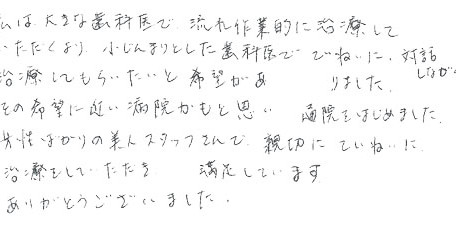 私は大きな歯科医で流れ作業的に治療して
いただくより、小じんまりとした歯科医で ていねいに、対話
しながら
治療してもらいたいと希望があ りました。
その希望に近い病院かもと思い 通院をはじめました。
女性ばかりの美人スタッフさんで、親切に ていねいに
治療をしていただき 満足しています
ありがとうございました。